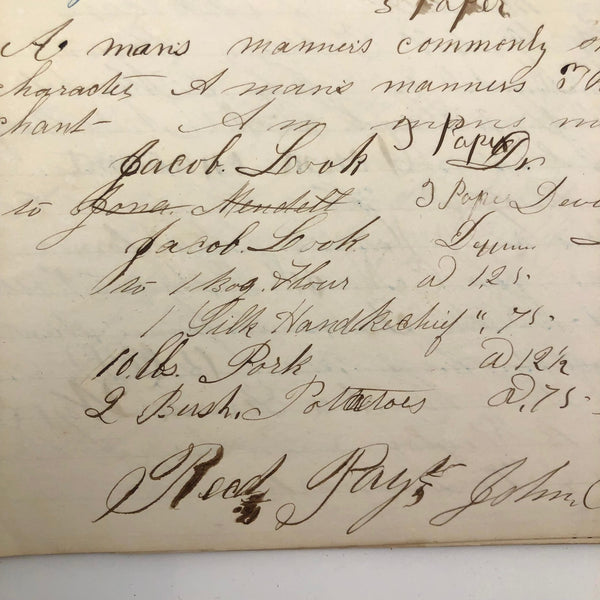 3 Paper
A man's manners commonly
character A man's manners
chant- A m mans m
Jacob. Look 3 Paper Dr.
to Jona. Mendell 3 Pape
Jacob. Look
to 1 Bog. Flour a 125.
1 Silk Handkechief ". 75.
10. lbs. Pork a 12 1/2
2 Bush. Potatoes a .75-
Recd Payt John.